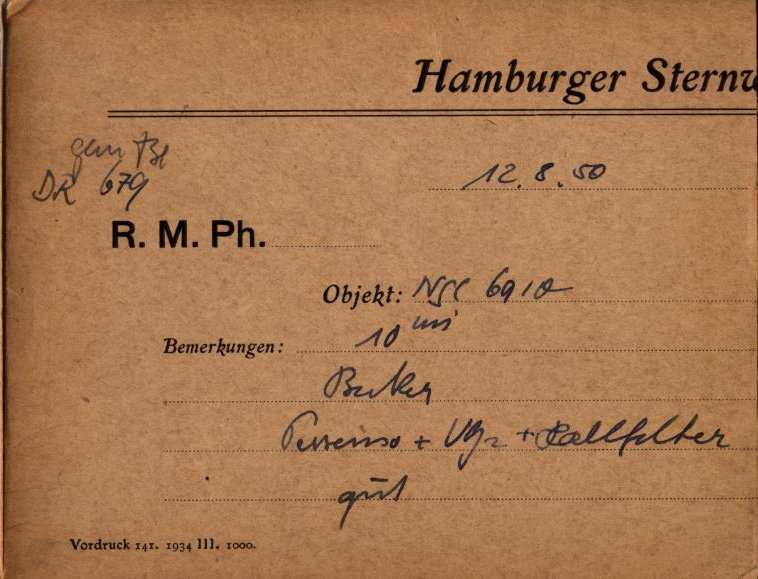 Hamburger Sternw
gem
DR 679
12.8.50
R. M. Ph.
Objekt: NGC 6910
Bemerkungen: 10 min
Becker
+ + Gelbfilter
gut
Vordruck 141. 1934 III. 1000.